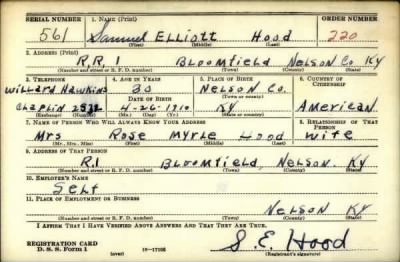 SERIAL NUMBER 1. NAME (Print) ORDER NUMBER
561 Samuel Elliott Hood 220
(First) (Middle) (Last)
2. ADDRESS (Print)
R.R. 1 Bloomfield Nelson Co Ky
(Number and street or R. F. D. number) (Town) (County) (State)
3. TELEPHONE 4. AGE IN YEARS 5. PLACE OF BIRTH 6. COUNTRY OF CITIZENSHIP
Willard Hawkins 30 Nelson Co.
DATE OF BIRTH (Town or county)
Chaplin 2532 4-26-1910 Ky American
(Exchange) (Number) (Mo.) (Day) (Yr.) (State or country)
7. NAME OF PERSON WHO WILL ALWAYS KNOW YOUR ADDRESS 8. RELATIONSHIP OF THAT PERSON
Mrs Rose Myrle Hood Wife
(Mr., Mrs., Miss) (First) (Middle) (Last)
9. ADDRESS OF THAT PERSON
R.1 Bloomfield, Nelson, Ky
(Number and street or R. F. D. number) (Town) (County) (State)
10. EMPLOYER'S NAME
Self
11. PLACE OF EMPLOYMENT OR BUSINESS
Nelson Ky
(Number and street or R. F. D. number) (Town) (County) (State)
I AFFIRM THAT I HAVE VERIFIED ABOVE ANSWERS AND THAT THEY ARE TRUE.
REGISTRATION CARD
D. S. S. Form 1 (over) 16-17105 S. E. Hood
(Registrant's signature)